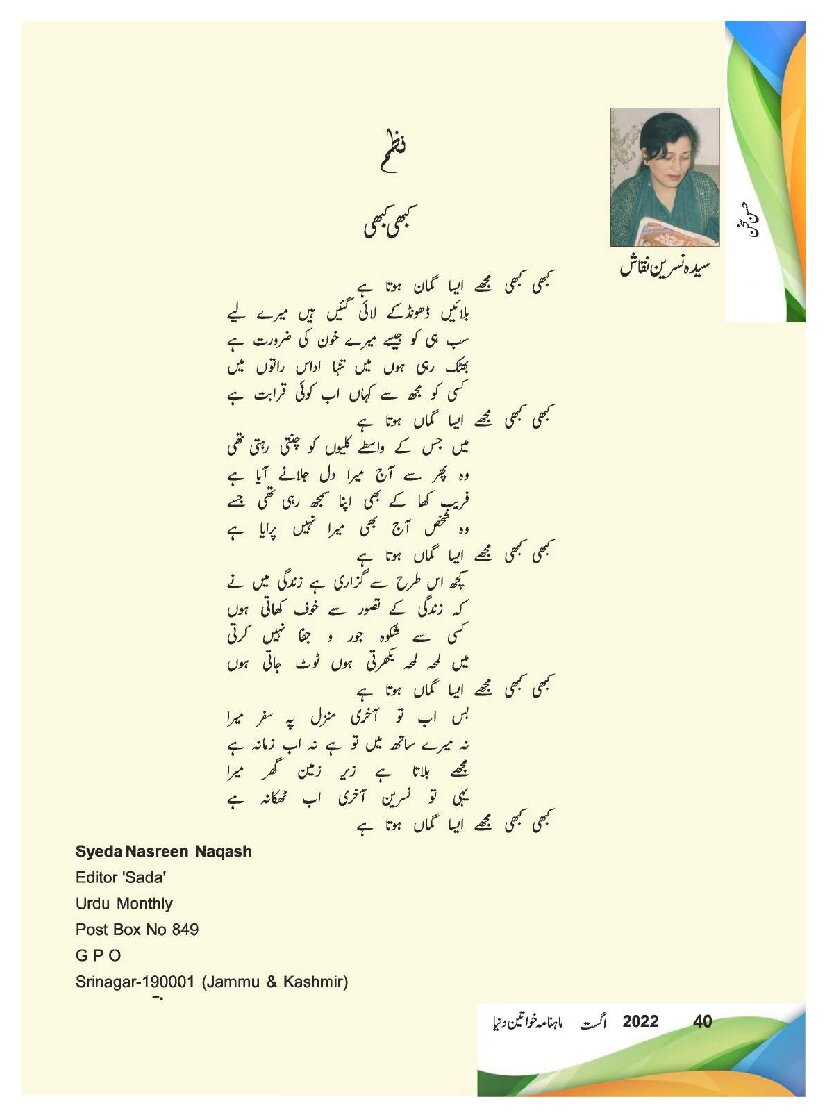 حسن سخن
سیدہ نسرین نقاش
نظم
کبھی کبھی
کبھی کبھی مجھے ایسا گمان ہوتا ہے
بلائیں ڈھونڈکے لائی گئیں ہیں میرے لیے
سب ہی کو جیسے میرے خون کی ضرورت ہے
بھٹک رہی ہوں میں تنہا اداس راتوں میں
کسی کو مجھ سے کہاں اب کوئی قرابت ہے
کبھی کبھی مجھے ایسا گماں ہوتا ہے
میں جس کے واسطے کلیوں کو چنتی رہتی تھی
وہ پھر سے آج میرا دل جلانے آیا ہے
فریب کھا کے بھی اپنا سمجھ رہی تھی جسے
وہ شخص آج بھی میرا نہیں پرایا ہے
کبھی کبھی مجھے ایسا گماں ہوتا ہے
کچھ اس طرح سے گزاری ہے زندگی میں نے
کہ زندگی کے تصور سے خوف کھاتی ہوں
کسی سے شکوہ جور و جفا نہیں کرتی
میں لمحہ لمحہ بکھرتی ہوں ٹوٹ جاتی ہوں
کبھی کبھی مجھے ایسا گماں ہوتا ہے
بس اب تو آخری منزل پہ سفر میرا
نہ میرے ساتھ میں تو ہے نہ اب زمانہ ہے
مجھے بلاتا ہے زیر زمین گھر میرا
یہی تو نسرین آخری اب ٹھکانہ ہے
کبھی کبھی مجھے ایسا گماں ہوتا ہے
Syeda Nasreen Naqash
Editor 'Sada'
Urdu Monthly
Post Box No 849
G P O
Srinagar-190001 (Jammu & Kashmir)
ماہنامہ خواتین دنیا اگست 2022 40